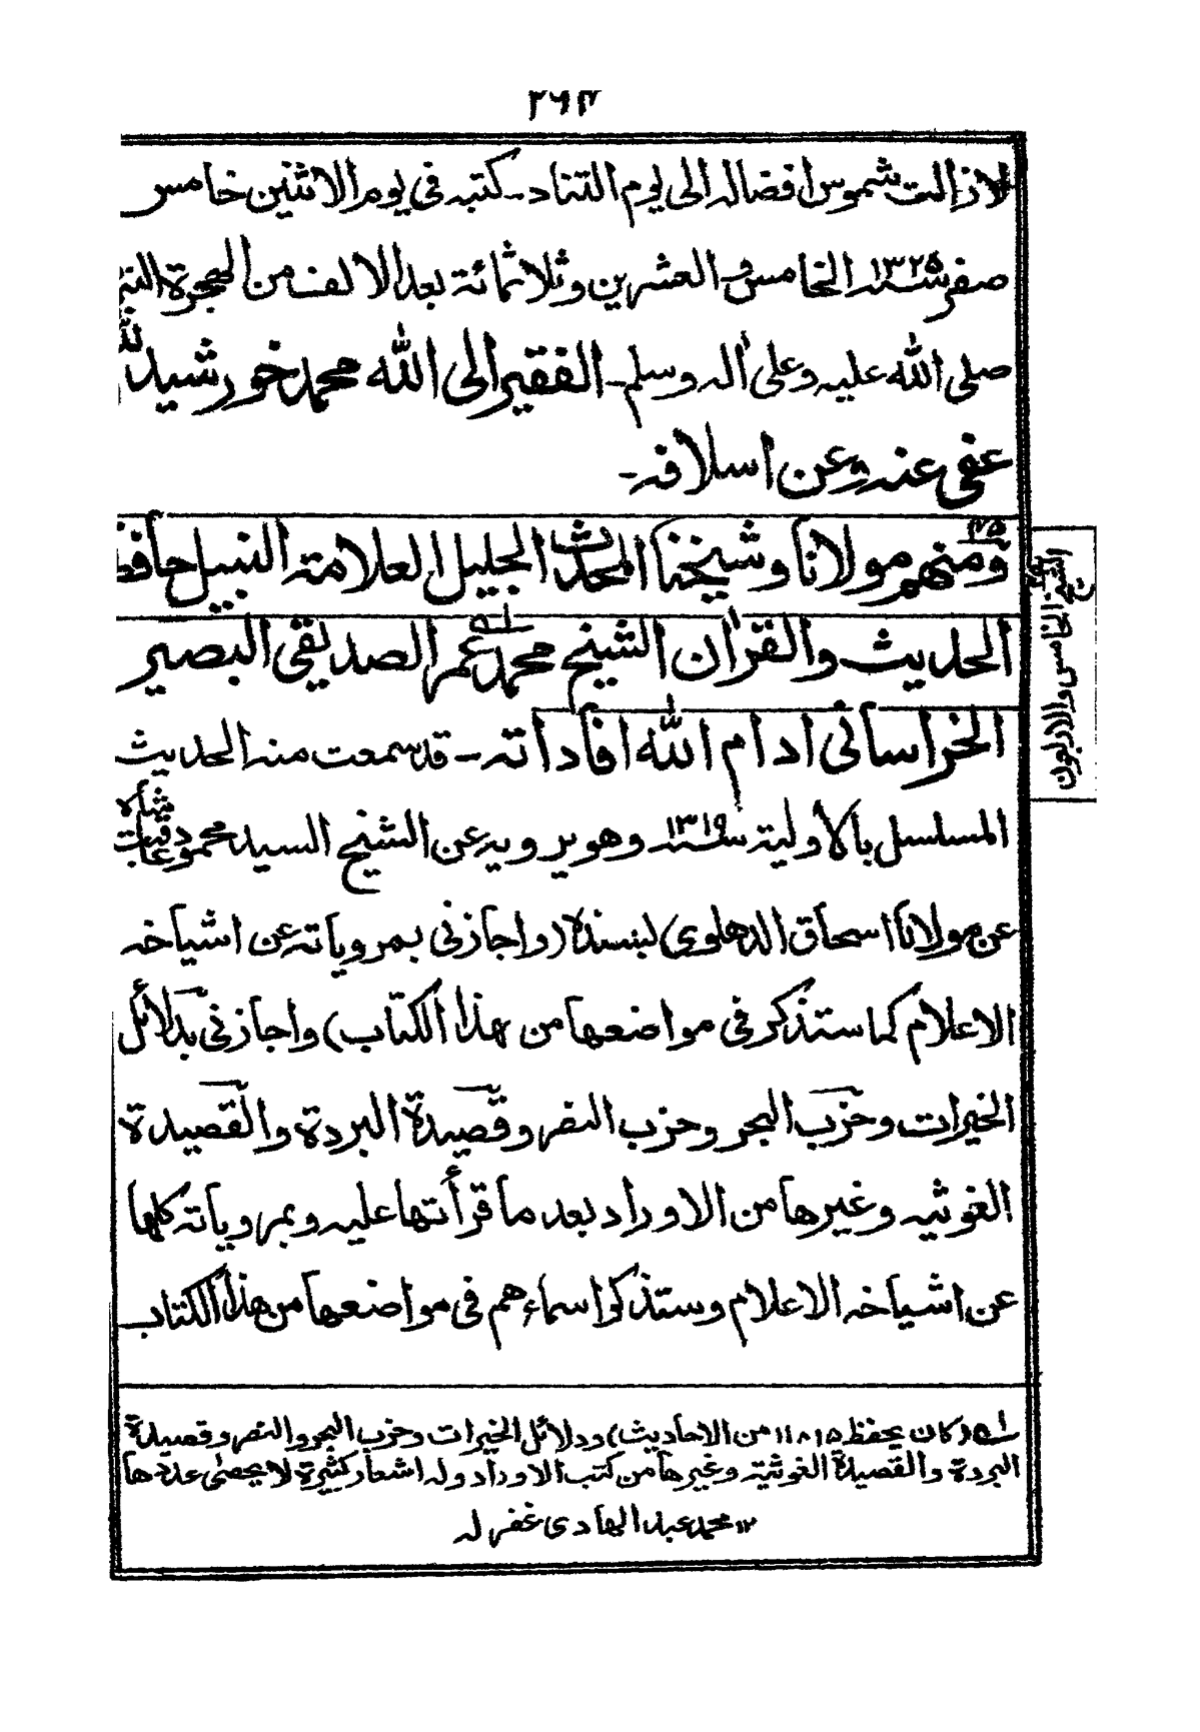 ٢٦٣
لازالت شموس افضاله الى يوم التناد - كتبه فى يوم الاثنين خامس
صفر سنة ١٣٢٥ الخامس والعشرين وثلاثمائة بعد الالف من الهجرة
صلى الله عليه وعلى اله وسلم - الفقير الى الله محمد خورشيد الله
عفى عنه وعن اسلافه -
٤٥
ومنهم مولانا وشيخنا المحدث الجليل العلامة النبيل حافظ
الحديث والقران الشيخ محمد عمر الصديقى البصير
الخراسانى ادام الله افاداته - قد سمعت منه الحديث
المسلسل بالاولية سنة ١٣١٩ وهو يرويه عن الشيخ السيد محمود شاه
عن مولانا اسحاق الدهلوى) بسنده (واجازنى بمروياته عن اشياخه
الاعلام كما ستذكر فى مواضعها من هذا الكتاب) واجازنى بدلائل
الخيرات وحزب البحر وحزب النصر وقصيدة البردة والقصيدة
الغوثيه وغيرها من الاوراد بعد ما قرأتها عليه وبمروياته كلها
عن اشياخه الاعلام وستذكر اسماءهم فى مواضعها من هذا الكتاب
الشيخ الخامس والاربعون
(كان يحفظ ١١٨١٥ من الاحاديث) ودلائل الخيرات وحزب البحر والنصر وقصيدة
البردة والقصيدة الغوثية وغيرها من كتب الاوراد وله اشعار كثيرة لا يحصى عددها
١٢ محمد عبد الهادى غفر له